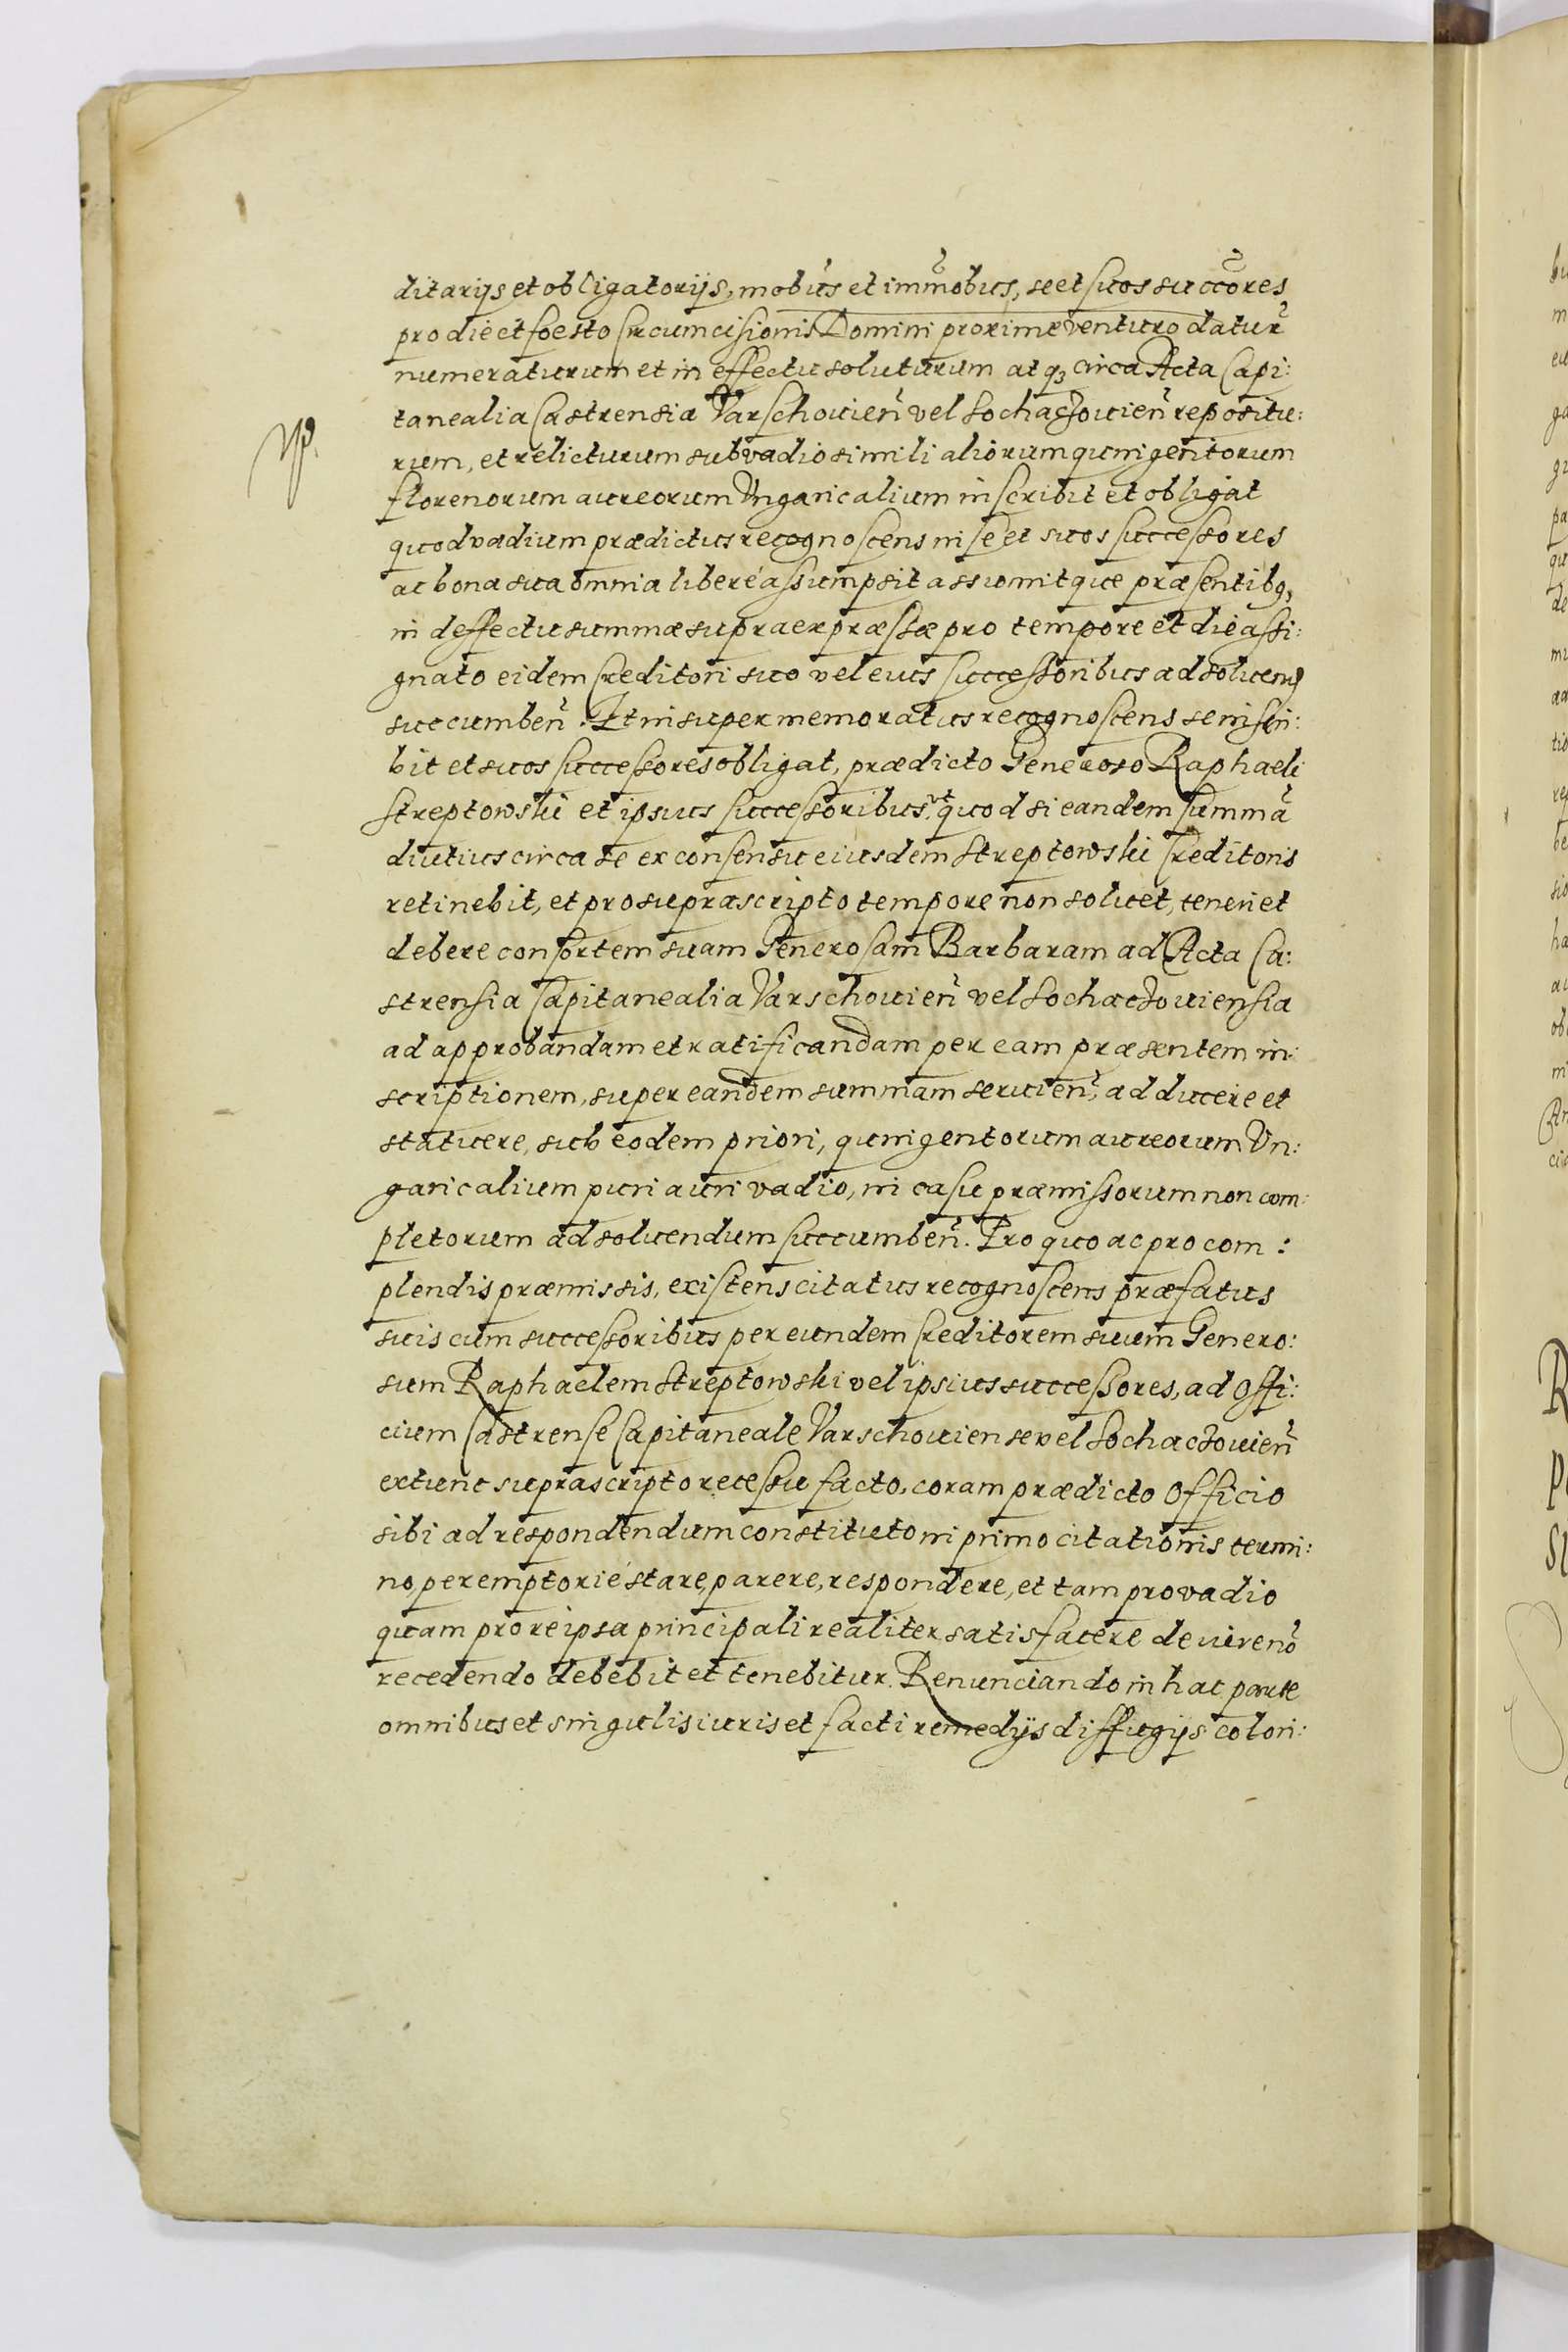 ditarijs et obligatorijs, mobus et immobus, se et suos succores
pro die et foesto Circumcisionis Domini proxime venturo datur
numeraturum et in effectu soluturum atq3 circa Acta Capi:
tanealia Castrensia Varschouien vel Sochaczouien repositu:
rum, et relicturum sub vadio simili aliorum quingentorum
florenorum aureorum Vngaricalium inscribit et obligat
quod vadium prædictus recognoscens in se et suos successores
ac bona sua omnia liberé assumpsit assumitque præsentibq3
in deffectu summæ supra expræssæ pro tempore et die assi:
gnato eidem Creditori suo vel eius successoribus ad soluend
succumben. Et insuper memoratus recognoscens se inscri:
bit et suos successores obligat, prædicto Generoso Raphaeli
Streptowski et ipsius successoribus vt quod si eandem summa
diutius circa se ex consensu eiusdem Streptowski Creditoris
retinebit, et pro supra scripto tempore non soluet, teneri et
debere consortem suam Generosam Barbaram ad Acta Ca:
strensia Capitanealia Varschouien vel Sochaczouiensia
ad approbandam et ratificandam per eam præsentem in:
scriptionem, super eandem summam seruien, adducere et
statuere, sub eodem priori, quingentorum aureorum Vn:
garicalium puri auri vadio, in casu præmissorum non com:
pletorum ad soluendum succumben. Pro quo ac pro com:
plendis præmissis, existens citatus recognoscens præfatus
suis cum successoribus per eundem Creditorem suum Genero:
sum Raphaelem Streptowski vel ipsius successores, ad Offi:
cium Castrense Capitaneale Varschouiense vel Sochaczouien
extunc suprascripto recessu facto, coram prædicto Officio
sibi ad respondendum constituto in primo citationis termi:
no, peremptorié stare, parere, respondere, et tam pro vadio
quam pro re ipsa principali realiter satisfacere de iure no
recedendo debebit et tenebitur. Renunciando in hac parte
omnibus et singulis iuris et facti remedijs diffugijs colori: